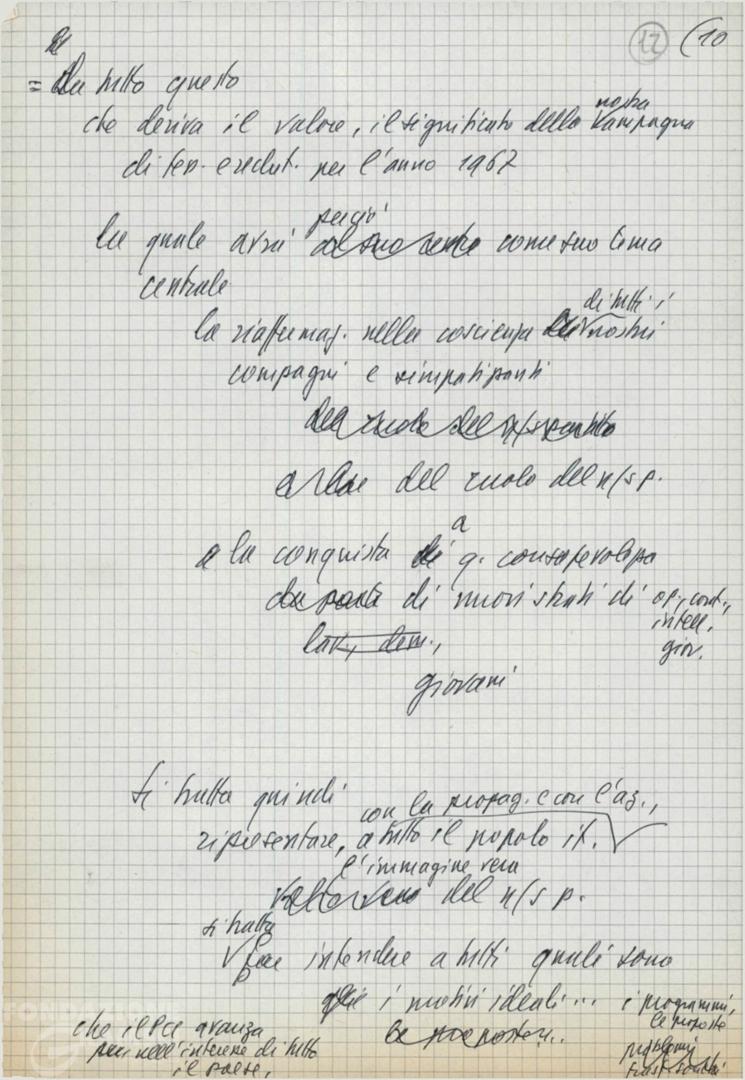 12 (10
= Da tutto questo
che deriva il valore, il significato della nostra campagna
di tes. e reclut. per l'anno 1967
la quale avrà perciò come suo tema
centrale
la riaffermaz. nella coscienza di tutti i nostri
compagni e simpatizzanti
del ruolo del n/s partito
del ruolo del n/s p.
e la conquista a q. consapevolezza
da parte di nuovi strati di op., cont.,
intell.,
lav., dem., giov.
giovani
Si tratta quindi
con la propag. e con l'az.,
ripresentare, a tutto il popolo it.
l'immagine vera
del n/s p.
si tratta
far intendere a tutti quali sono
i motivi ideali... i programmi,
le proposte
che il PCI avanza le proposte...
per nell'interesse di tutto problemi
il paese,